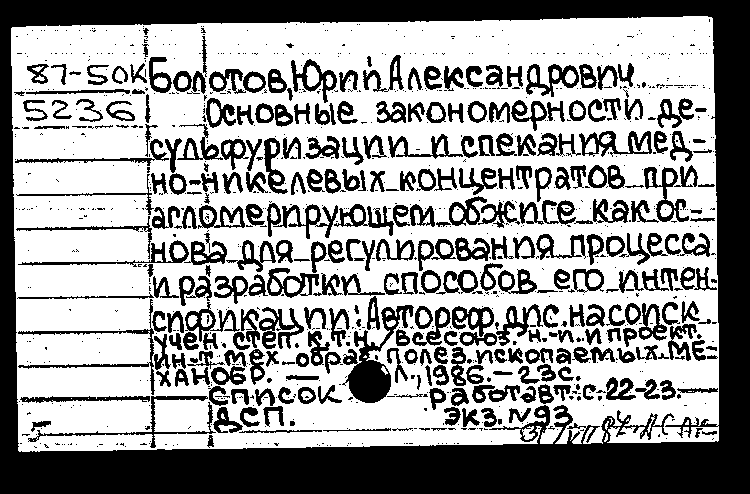 87-50К Болотов, Юрий Александрович.
5236 Основные закономерности де-
сульфуризации и спекания мед-
но-никелевых концентратов при
агломерирующем обжиге как ос-
нова для регулирования процесса
и разработки способов его интен-
сификации: Автореф. дис. на соиск.
учен. степ. к.т.н. / Всесоюз. н.-и. и проект.
ин-т мех. обраб. полез. ископаемых МЕ-
ХАНОБР. — Л., 1986. — 23с.
Список работ авт.: с. 22-23.
ДСП. Экз. N 93
5